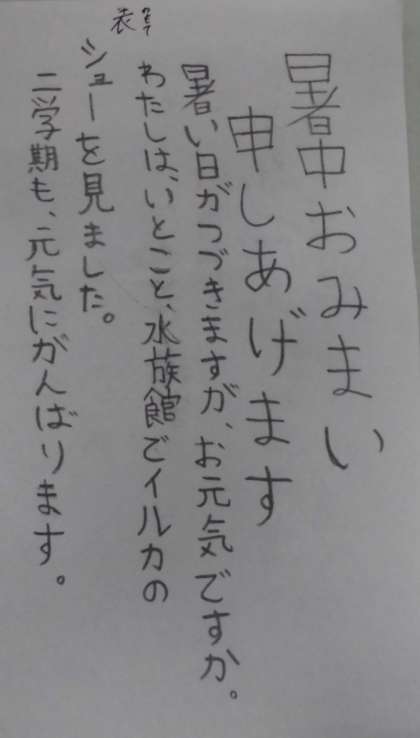 暑中おみまい
申しあげます
暑い日がつづきますが、お元気ですか。
わたしは、いとこと、水族館でイルカの
ショーを見ました。
二学期も、元気にがんばります。
表